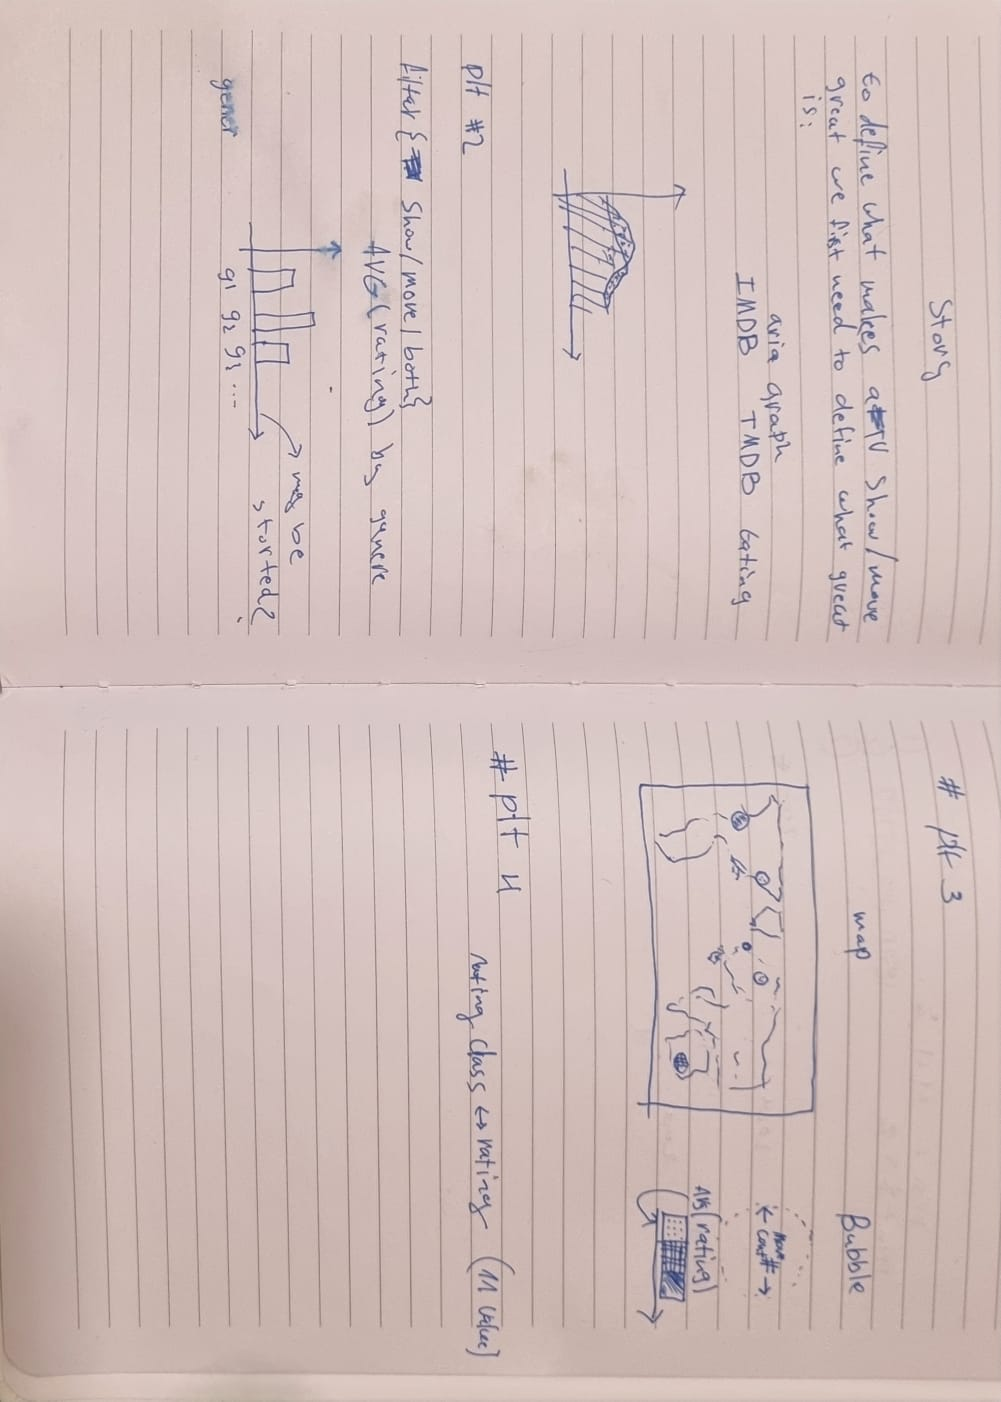 Story
to define what makes a TV Show/move
great we first need to define what great
is:
aria graph
IMDB TMDB
plt #2
filter { Show/move/both}
AVG(rating) by genere
may be
storted?
g1 g2 g3 ...
gener
# plt 3
map
Bubble
AVG(rating)
# plt 4
rating class ↔ rating (11 value)